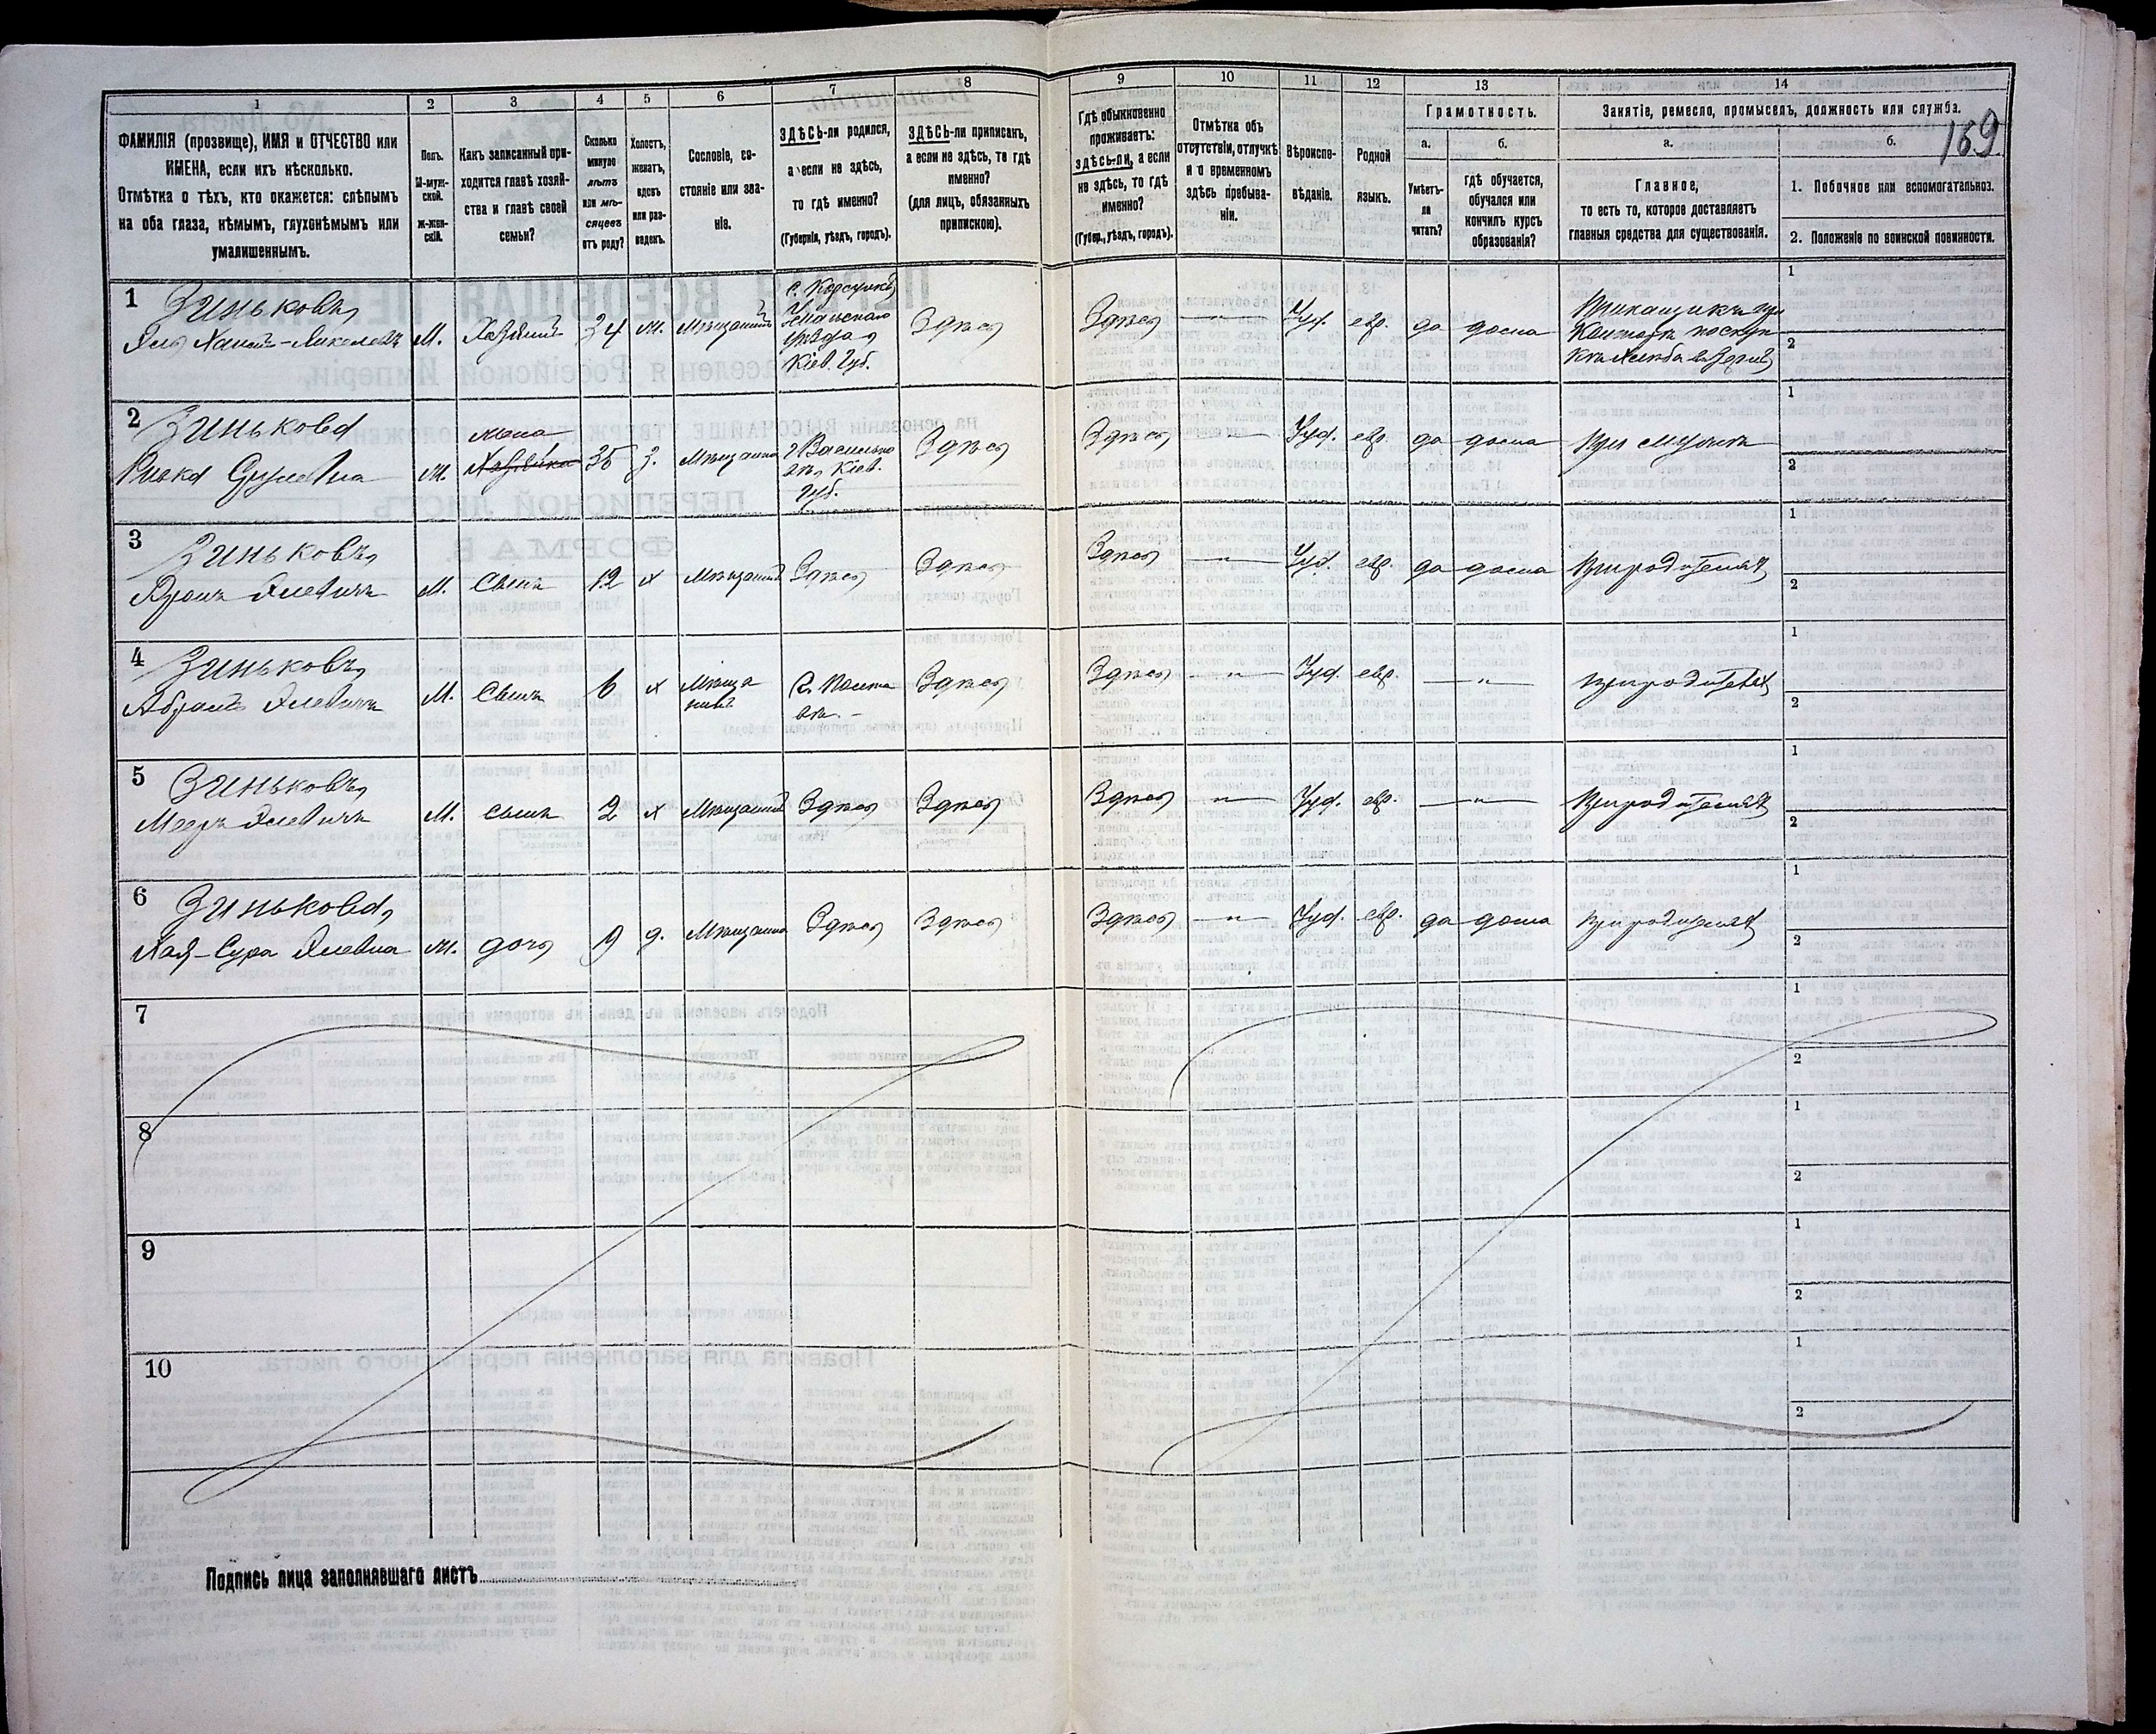 169
1
2
3
4
5
6
7
8
9
10
11
12
13
14
ФАМИЛІЯ (прозвище), ИМЯ и ОТЧЕСТВО или
ИМЕНА, если ихъ нѣсколько.
Отмѣтка о тѣхъ, кто окажется: слѣпымъ
на оба глаза, нѣмымъ, глухонѣмымъ или
умалишеннымъ.
Полъ.
М-муж-
ской.
Ж-жен-
скій.
Какъ записанный при-
ходится главѣ хозяй-
ства и главѣ своей
семьи?
Сколько
минуло
лѣтъ
или мѣ-
сяцевъ
отъ роду?
Холостъ,
женатъ,
вдовъ
или раз-
веденъ.
Сословіе, со-
стояніе или зва-
ніе.
ЗДѢСЬ-ли родился,
а если не здѣсь,
то гдѣ именно?
(Губернія, уѣздъ, городъ).
ЗДѢСЬ-ли приписанъ,
а если не здѣсь, то гдѣ
именно?
(для лицъ, обязанныхъ
припискою).
Гдѣ обыкновенно
проживаетъ:
здѣсь-ли, а если
не здѣсь, то гдѣ
именно?
(Губер., уѣздъ, городъ).
Отмѣтка объ
отсутствіи, отлучкѣ
и о временномъ
здѣсь пребыва-
ніи.
Вѣроиспо-
вѣданіе.
Родной
языкъ.
Грамотность.
а.
Умѣетъ-
ли
читать?
б.
гдѣ обучается,
обучался или
кончилъ курсъ
образованія?
Занятіе, ремесло, промыселъ, должность или служба.
а.
Главное,
то есть то, которое доставляетъ
главныя средства для существованія.
б.
1. Побочное или вспомогательное.
2. Положеніе по воинской повинности.
1 Зиньковъ
М. Хозяинъ 34 ж. Мѣщанинъ
Уманскаго
уѣзда
Кіев. Губ.
Здѣсь
Здѣсь — " — Іуд. евр. да дома
1
2
2 Зинькова
жена
ж. Хозяйка 35 з. Мѣщанка
Кіев.
Губ.
Здѣсь
Здѣсь — " — Іуд. евр. да дома При мужѣ
1
2
3 Зиньковъ
М. Сынъ 12 х Мѣщанинъ Здѣсь Здѣсь
Здѣсь — " — Іуд. евр. да дома При родителяхъ
1
2
4 Зиньковъ
Абрамъ
М. Сынъ 6 х Мѣща
нинъ
Здѣсь
Здѣсь — " — Іуд. евр. — " — При родителяхъ
1
2
5 Зиньковъ
Мееръ
М. Сынъ 2 х Мѣщанинъ Здѣсь Здѣсь
Здѣсь — " — Іуд. евр. — " — При родителяхъ
1
2
6 Зинькова
Хая-Сура
ж. дочь 9 д. Мѣщанка Здѣсь Здѣсь
Здѣсь — " — Іуд. евр. да дома При родителяхъ
1
2
7
1
2
8
1
2
9
1
2
10
1
2
Подпись лица заполнявшаго листъ